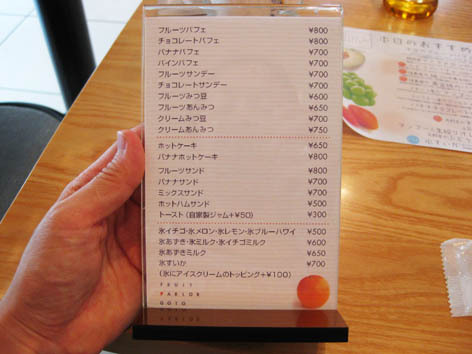 フルーツパフェ ¥800
チョコレートパフェ ¥800
バナナパフェ ¥700
パインパフェ ¥700
フルーツサンデー ¥700
チョコレートサンデー ¥700
フルーツみつ豆 ¥600
フルーツあんみつ ¥650
クリームみつ豆 ¥700
クリームあんみつ ¥750
ホットケーキ ¥650
バナナホットケーキ ¥800
フルーツサンド ¥800
バナナサンド ¥700
ミックスサンド ¥700
ホットハムサンド ¥500
トースト(自家製ジャム+¥50) ¥300
氷イチゴ・氷メロン・氷レモン・氷ブルーハワイ ¥500
氷あずき・氷ミルク・氷イチゴミルク ¥600
氷あずきミルク ¥650
氷すいか ¥700
(氷にアイスクリームのトッピング+¥100)
FRUIT
PARLOR
GOTO
本日のおすすめ